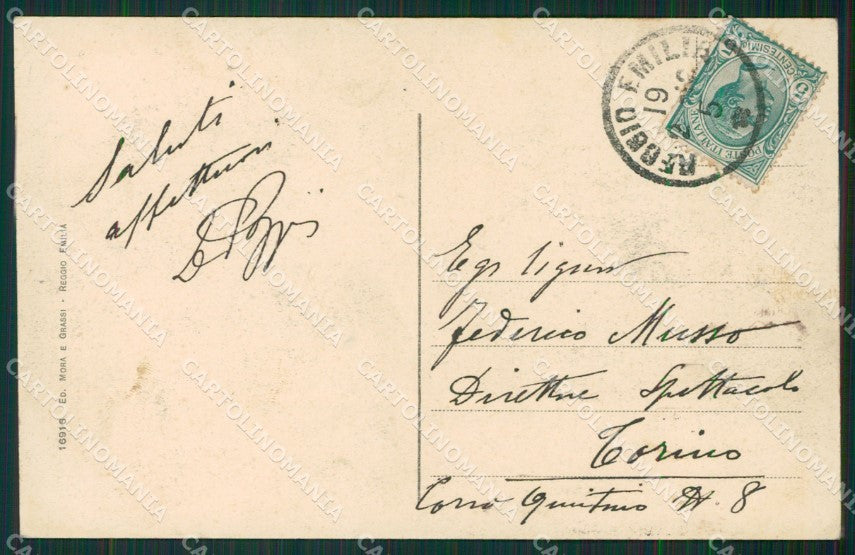 Saluti
affettuosi
Poggi
16916 - ED. MORA E GRASSI - REGGIO EMILIA
REGGIO EMILIA
19
2 5
POSTE ITALIANE
CENTESIMI 5
Egr Signor
Federico Musso
Direttore Spettacolo
Torino
Corso Quintino N. 8
CARTOLINOMANIA